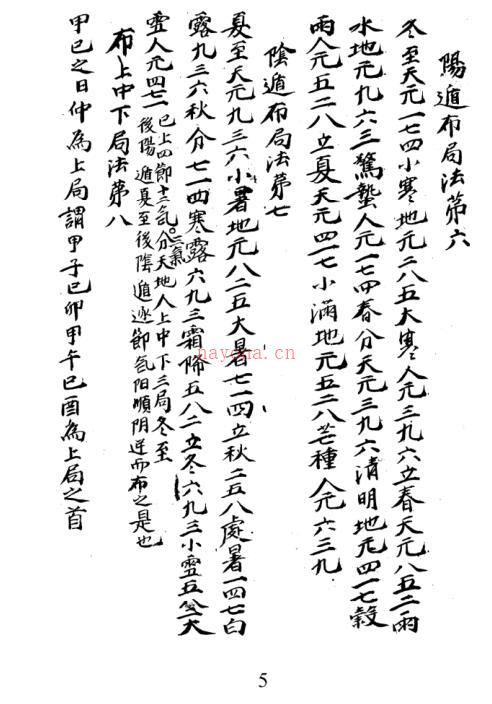 陽遁布局法第六
冬至天元一七四小寒地元二八五大寒人元三九六立春天元八五二雨
水地元九六三驚蟄人元一七四春分天元三九六清明地元四一七穀
雨人元五二八立夏天元四一七小滿地元五二八芒種人元六三九
陰遁布局法第七
夏至天元九三六小暑地元八二五大暑七一四立秋二五八處暑一四七白
露九三六秋分七一四寒露六九三霜降五八二立冬六九三小雪五八二大
雪人元四七一
已上四節十二氣分天地人上中下三局冬至
二氣
後陽遁夏至後陰遁逐節氣阳順阴逆而布之是也
布上中下局法第八
甲已之日仲為上局謂甲子已卯甲午已酉為上局之首
hayona.cn
5